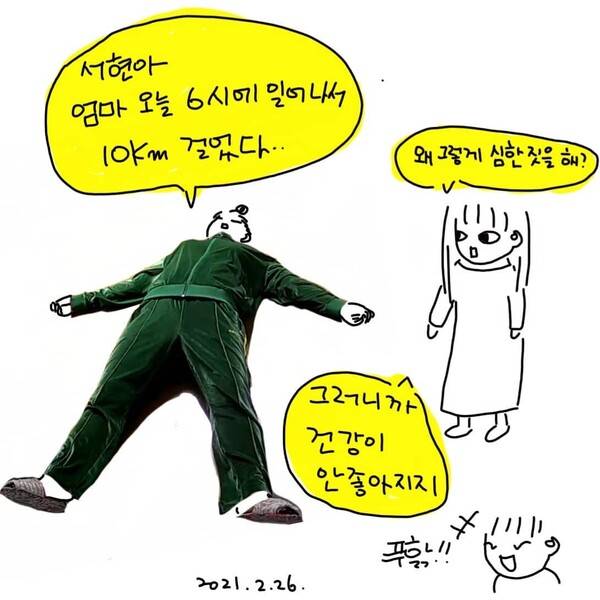 서현아
엄마 오늘 6시에 일어나서
10km 걸었다..
왜 그렇게 심한 짓을 해?
그러니까
건강이
안 좋아지지
푸핡!!
2021.2.26.